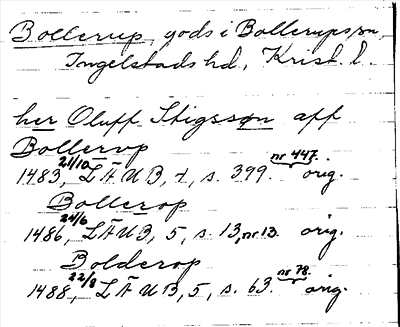 Bollerup, gods i Bollerups sn,
Ingelstads hd, Krist. l.
her Oluff Stigsson aff
Bollervp
1483, 21/10 LÄUB, 4, s. 399. nr 447. orig.
Bollerop
1486, 24/6 LÄUB, 5, s. 13, nr. 13. orig.
Bolderop
1488, 22/8 LÄUB, 5, s. 63. nr 78. orig.